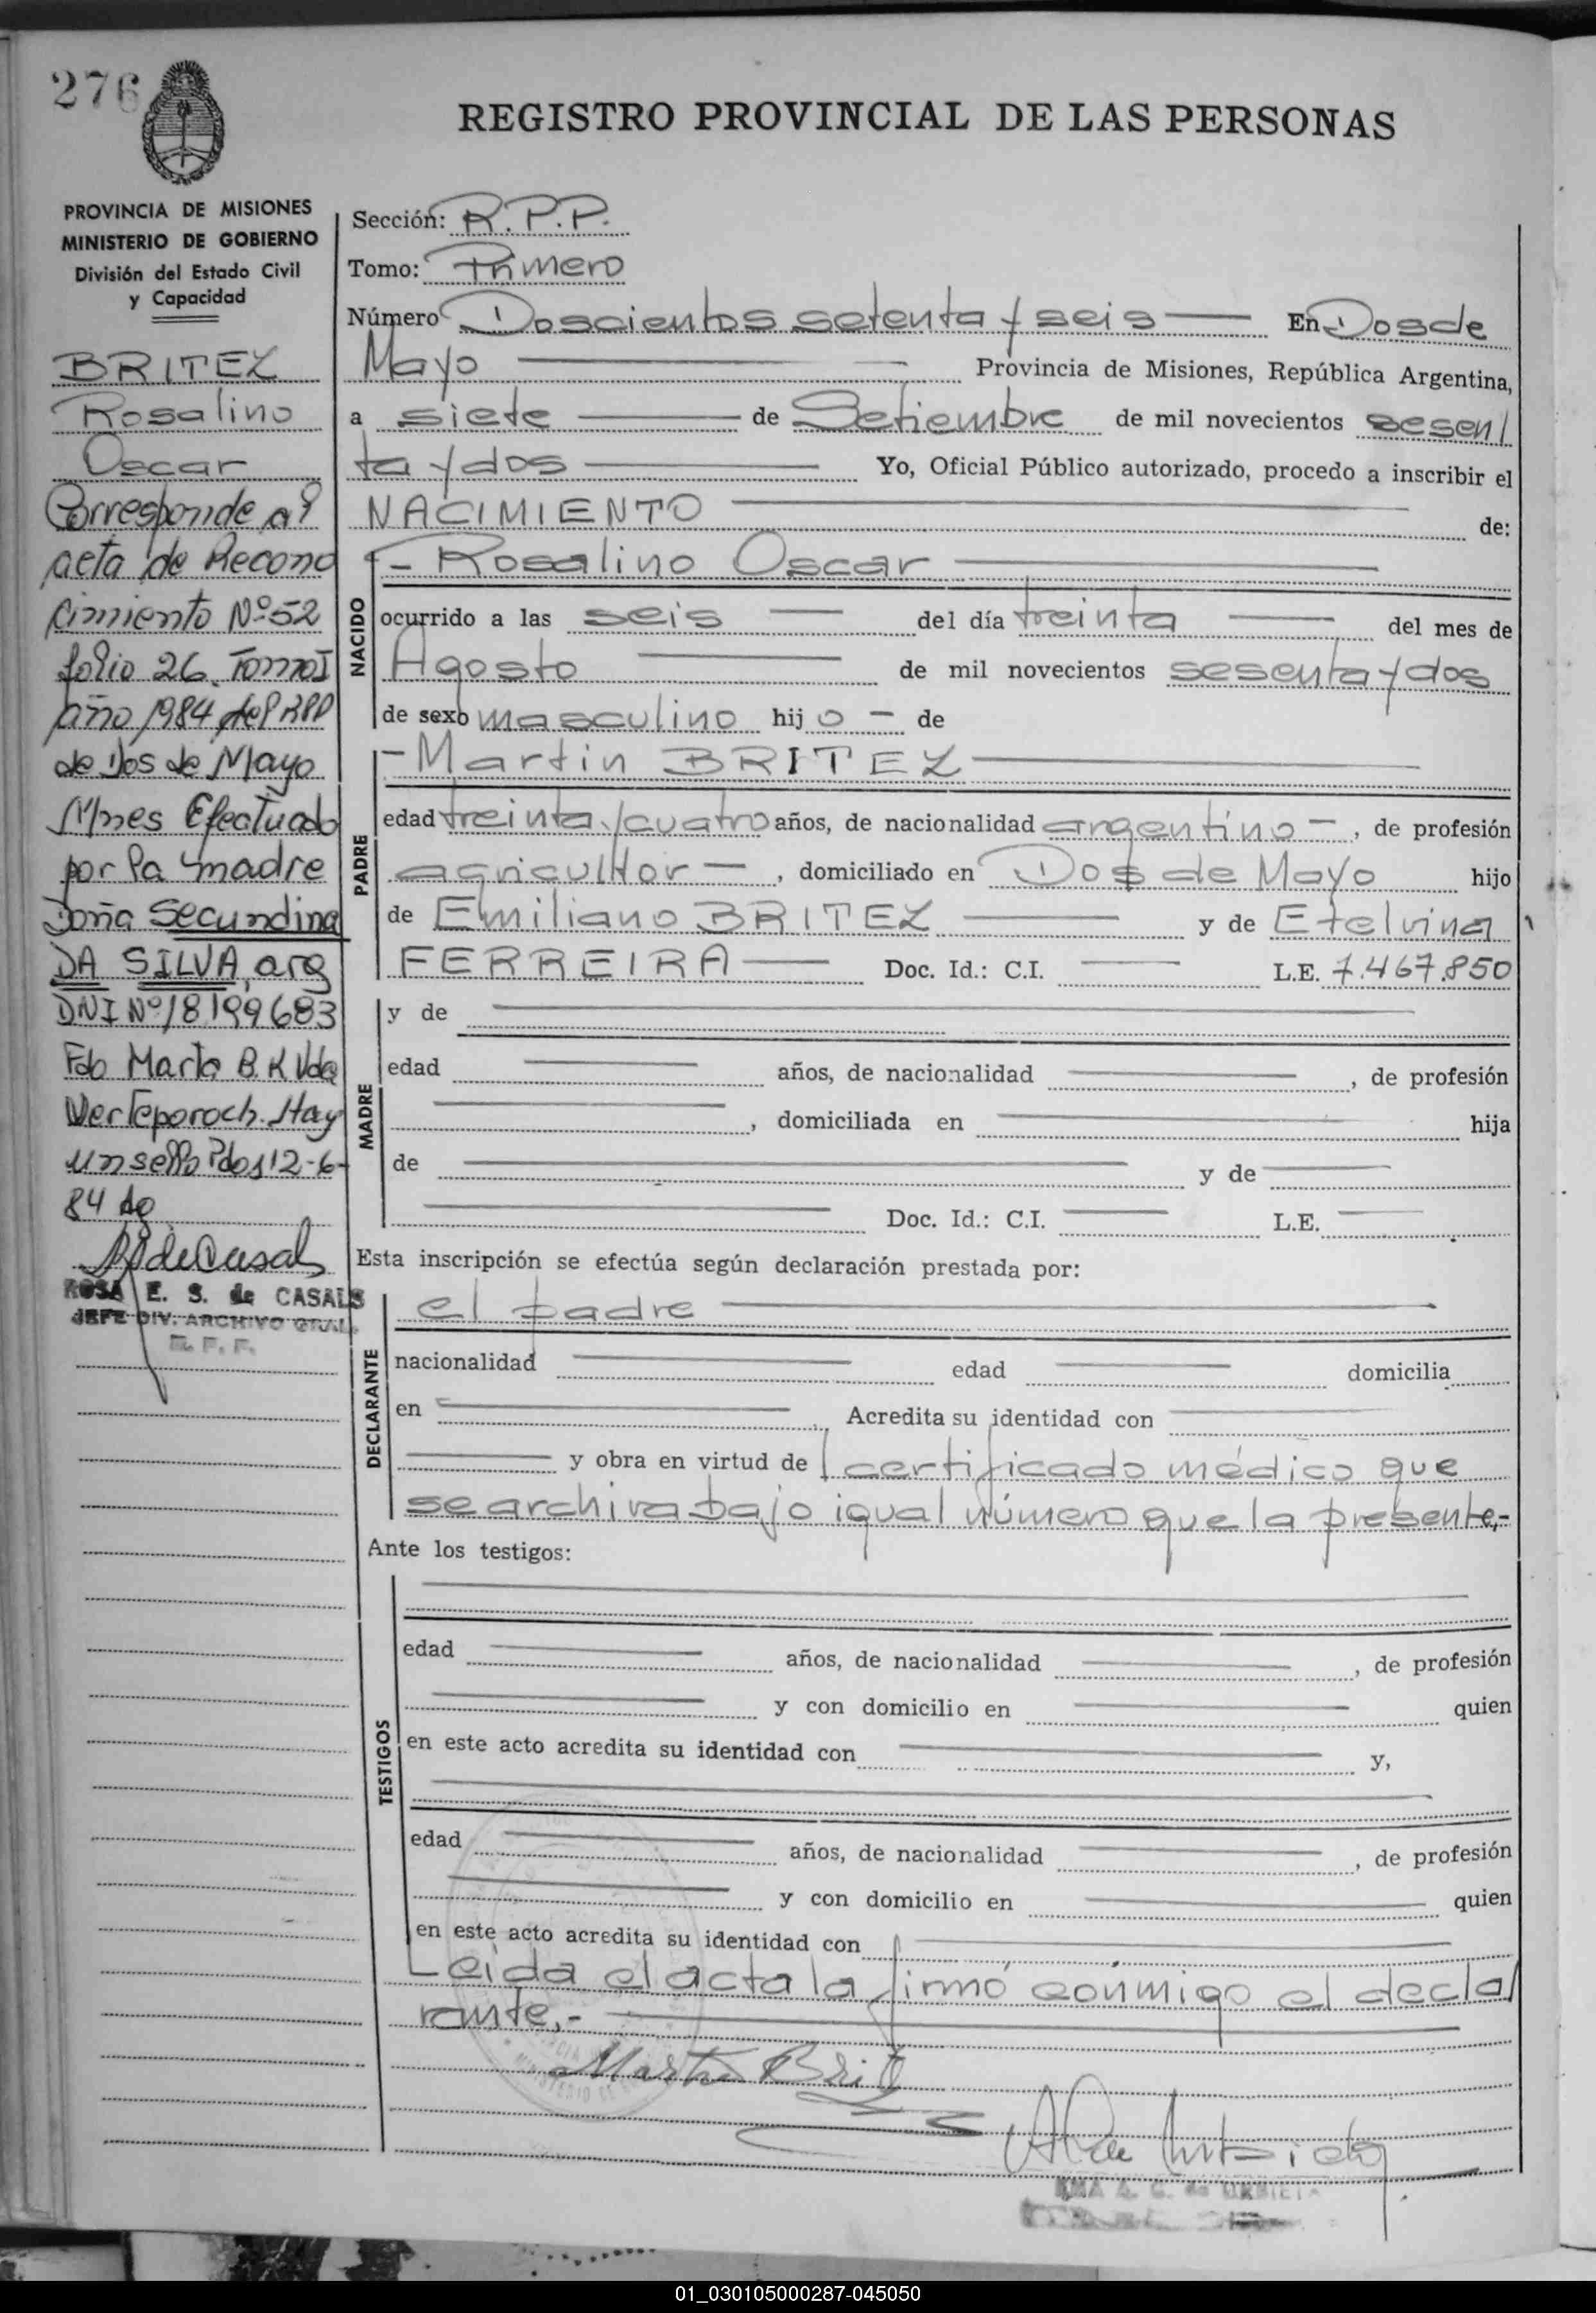 276
REGISTRO PROVINCIAL DE LAS PERSONAS
PROVINCIA DE MISIONES
MINISTERIO DE GOBIERNO
División del Estado Civil
y Capacidad
BRITEZ
Rosalino
Oscar
Corresponde al
acta de Recono
cimiento Nº 52
folio 26. Tomo I
año 1984 del RPP
de Dos de Mayo
Mnes Efectuado
por la madre
Doña Secundina
DA SILVA, arg
DNI Nº 18199683
Fdo Marta B. K Vda
Werteporoch. Hay
un sello Pdas 12-6-
84
ROSA E. S. de CASALS
JEFE DIV. ARCHIVO GRAL.
Sección: R.P.P.
Tomo: Primero
Número Doscientos setenta y seis En Dos de
Mayo Provincia de Misiones, República Argentina,
a siete de Setiembre de mil novecientos sesen/
ta y dos Yo, Oficial Público autorizado, procedo a inscribir el
NACIMIENTO de:
NACIDO
- Rosalino Oscar
ocurrido a las seis del día treinta del mes de
Agosto de mil novecientos sesenta y dos
de sexo masculino hijo - de
PADRE
- Martin BRITEZ
edad treinta y cuatro años, de nacionalidad argentino -, de profesión
agricultor -, domiciliado en Dos de Mayo hijo
de Emiliano BRITEZ y de Etelvina
FERREIRA Doc. Id.: C.I. L.E. 7.467.850
MADRE
y de
edad años, de nacionalidad , de profesión
, domiciliada en hija
de y de
Doc. Id.: C.I. L.E.
Esta inscripción se efectúa según declaración prestada por:
DECLARANTE
el padre
nacionalidad edad domicilia
en Acredita su identidad con
y obra en virtud de l certificado médico que
se archiva bajo igual número que la presente,-
Ante los testigos:
TESTIGOS
edad años, de nacionalidad , de profesión
y con domicilio en quien
en este acto acredita su identidad con y,
edad años, de nacionalidad , de profesión
y con domicilio en quien
en este acto acredita su identidad con
Leida el acta la firmó conmigo el decla/
rante,-
Martin Britez
01_030105000287-045050